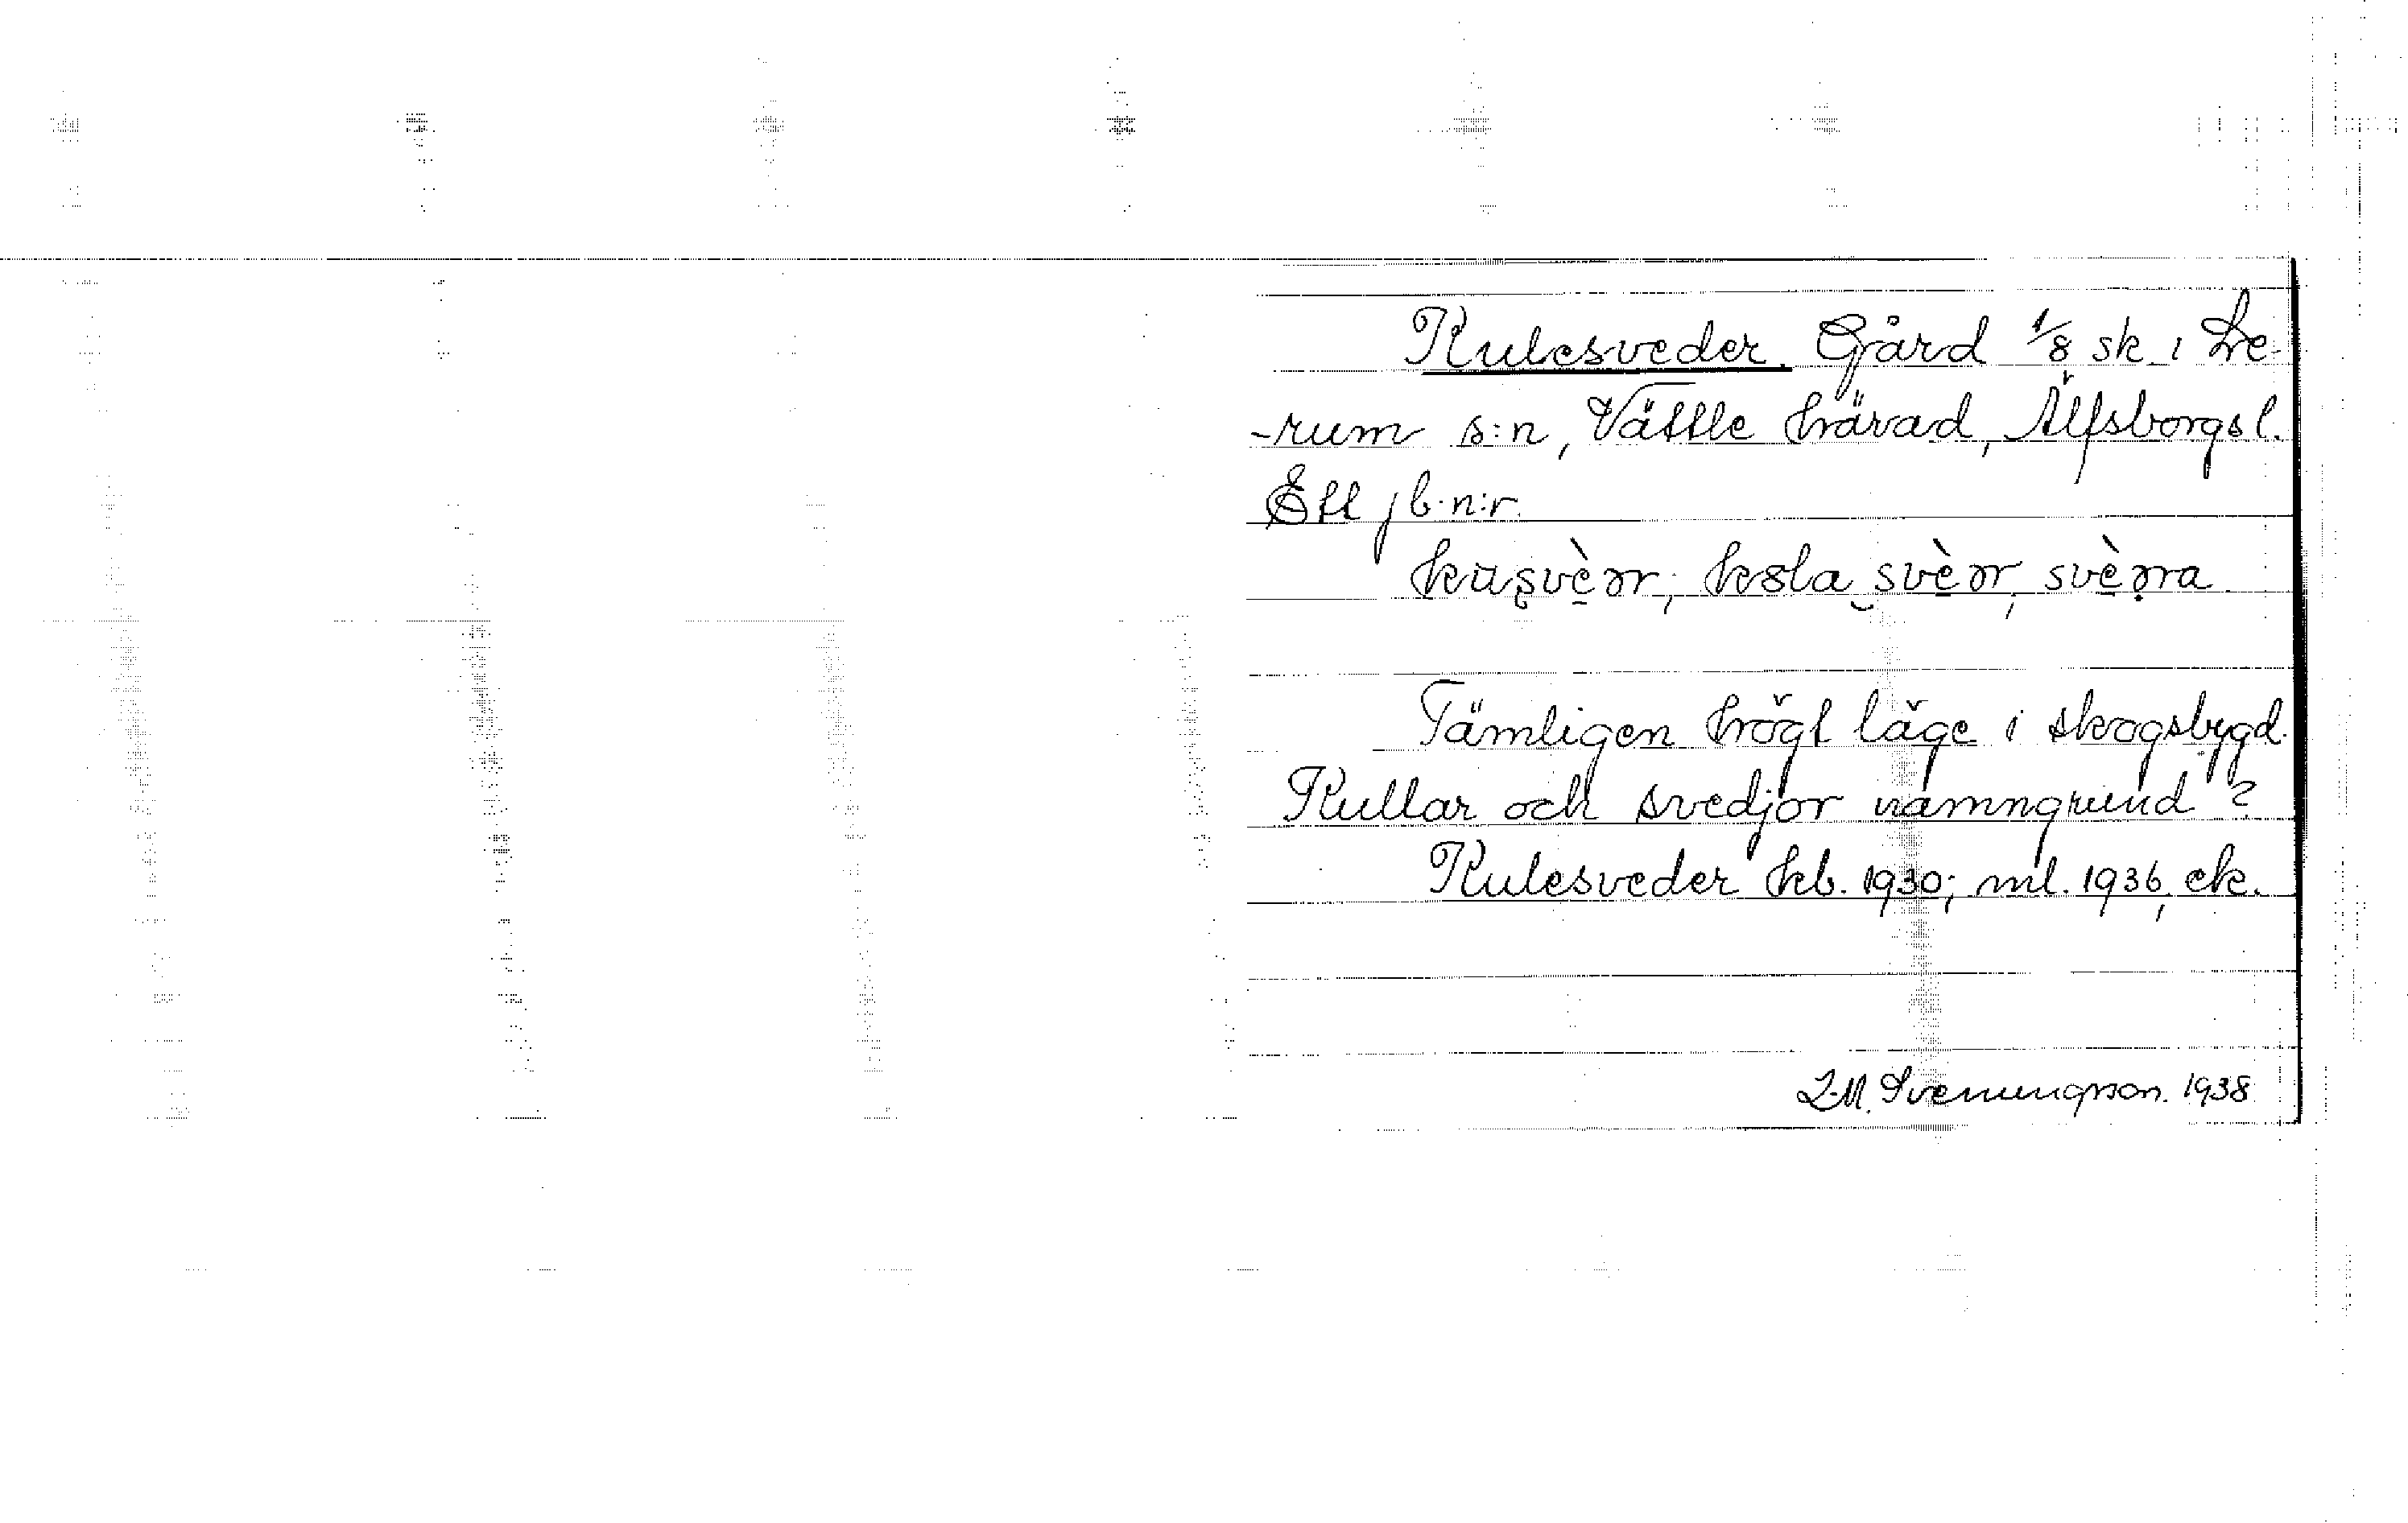 Kulesveder. Gård 1/8 sk i Le-
-rum s:n, Vättle härad, Älfsborgs l.
Ett jb.n:r.
svèrra
Tämligen högt läge i skogsbygd.
Kullar och svedjor namngrund?
Kulesveder kb. 1930; ml. 1936, ek.
1938